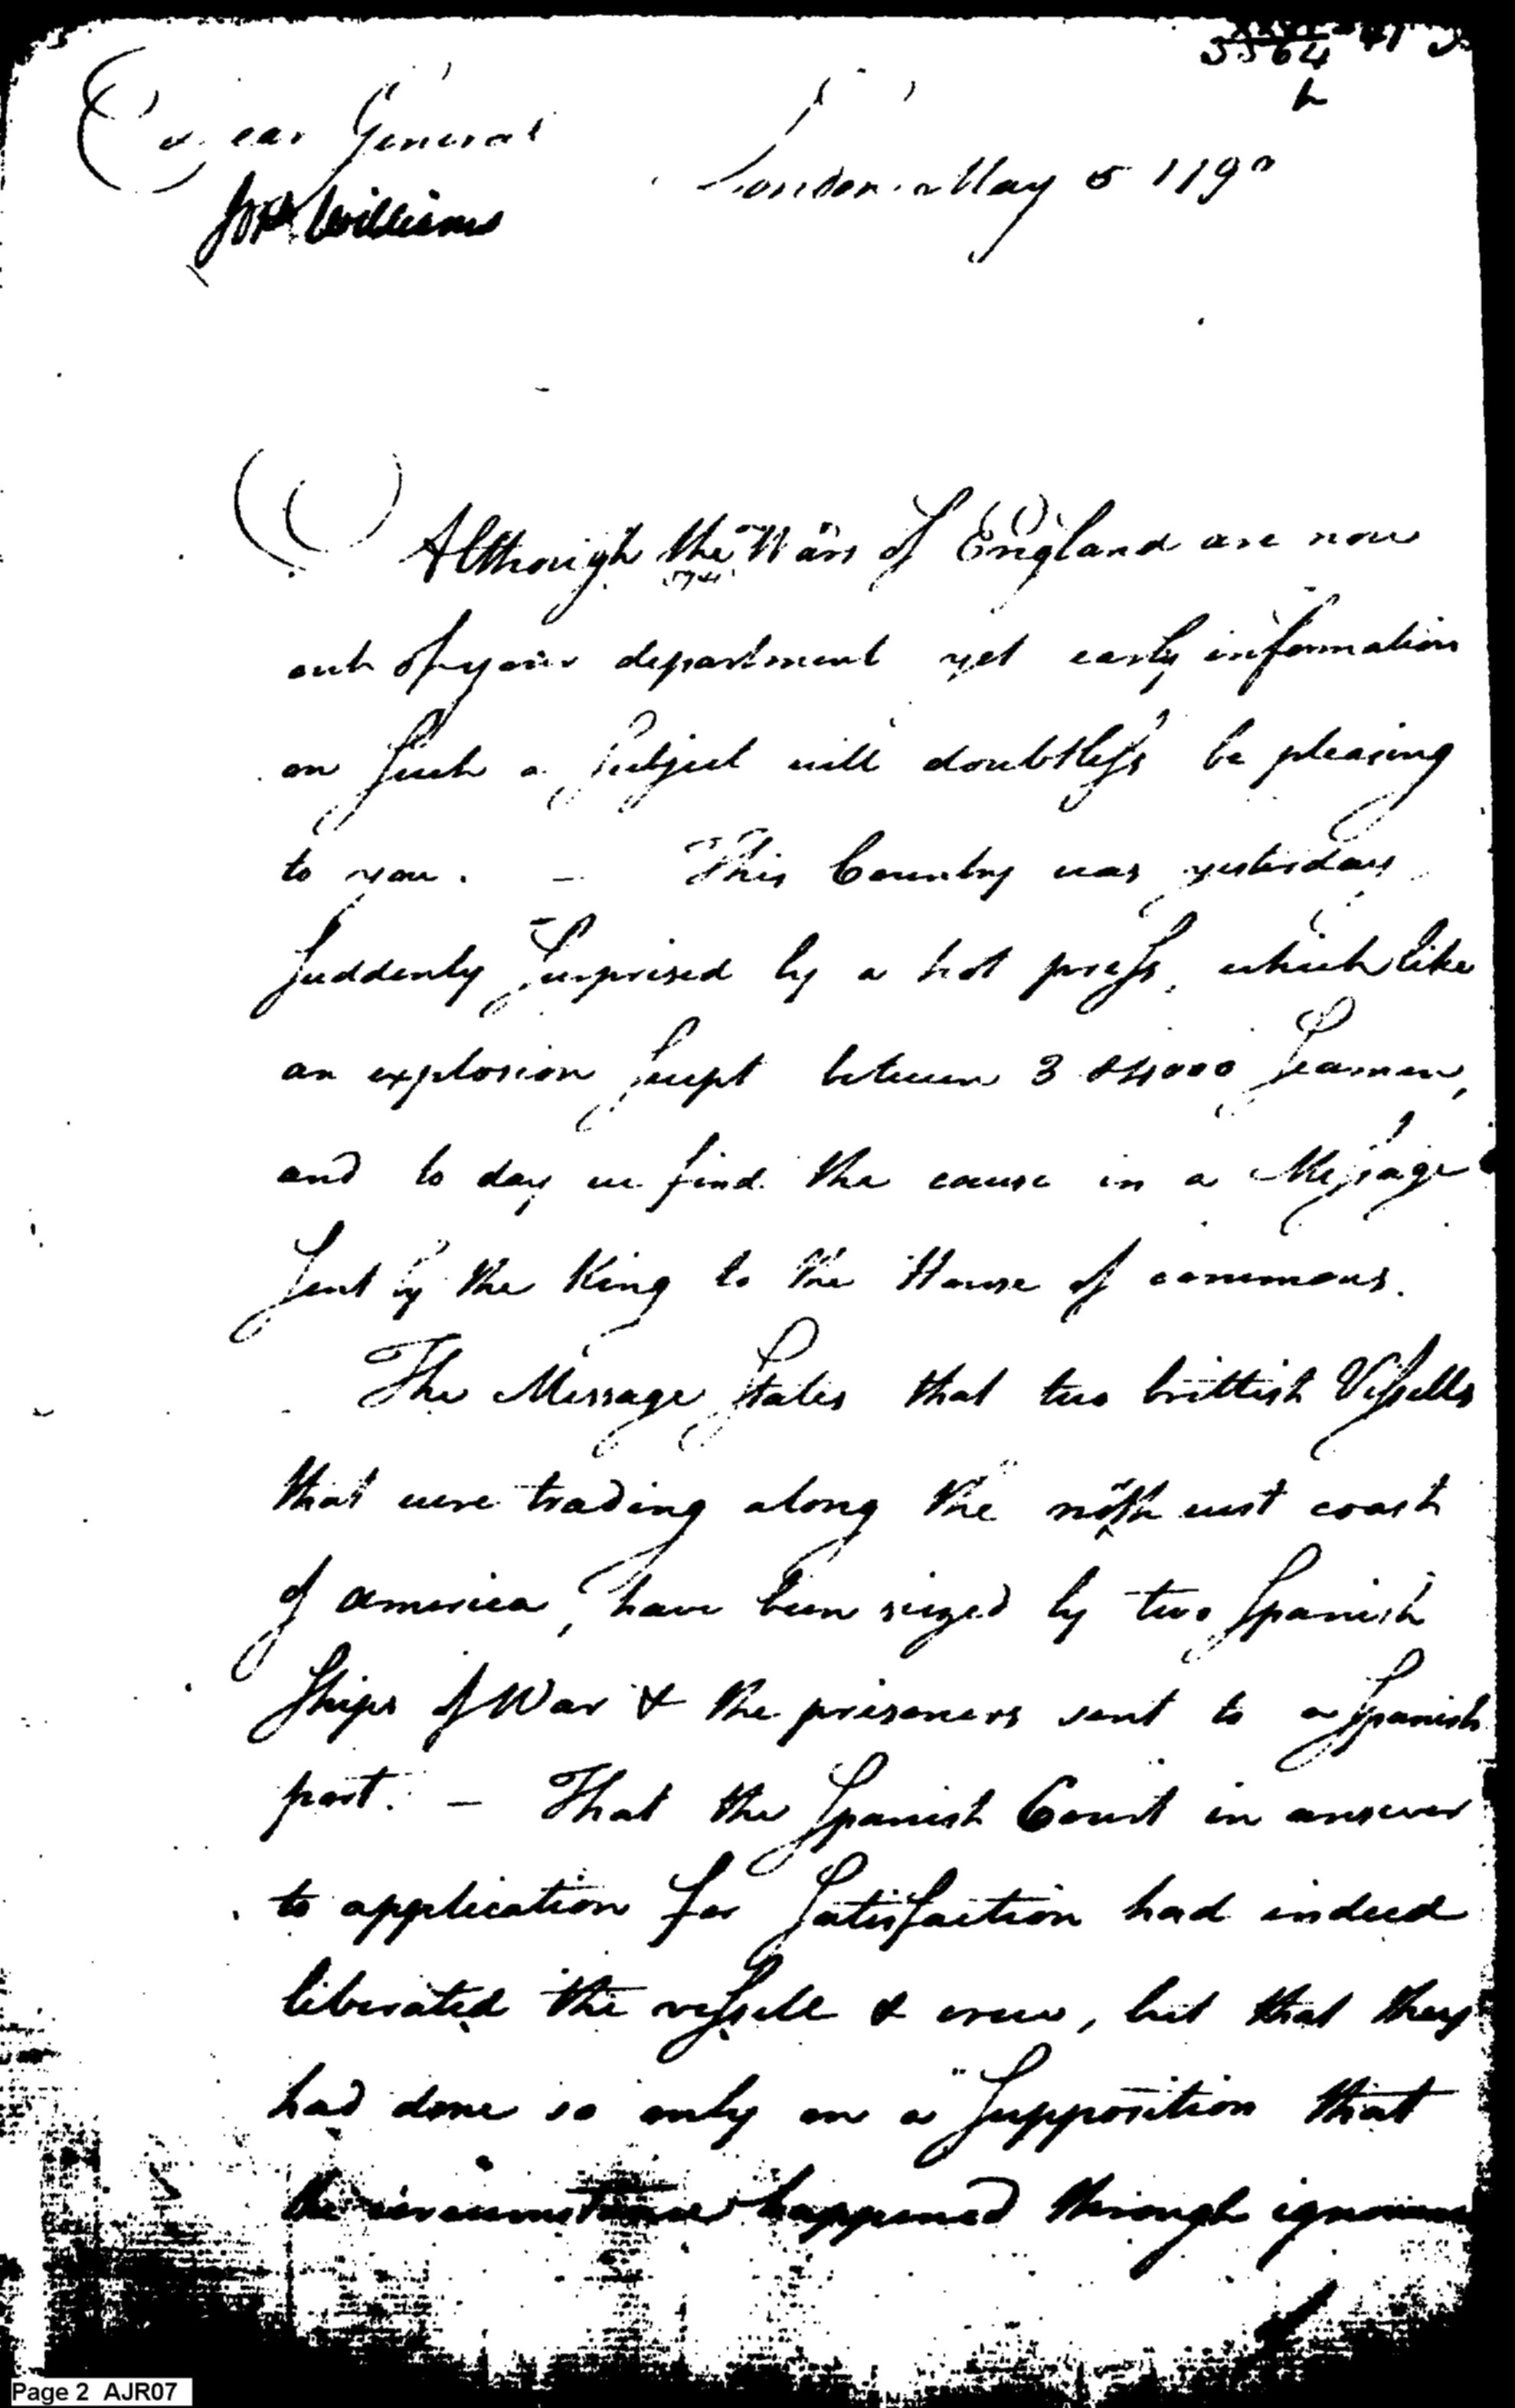 5564
Dear General
London May 5 1790
Jon Williams
Although the Wars of England are now
out of your department yet early information
on Such a Subject will doubtless be pleasing
to you. — This Country was yesterday
Suddenly Surprised by a hot press, which like
an explosion Swept between 3 & 4000 Seamen,
and to day we find the cause in a Message
Sent by the King to the House of commons.
The Message States that two brittish Vessells
that were trading along the north west coast
of america, have been seized by two Spanish
Ships of War & the prisoners sent to a Spanish
port. — That the Spanish Court in answer
to application for Satisfaction had indeed
liberated the vessell & crew, but that they
had done so only on a Supposition that
the circumstance happened through ignorance
Page 2 AJR07